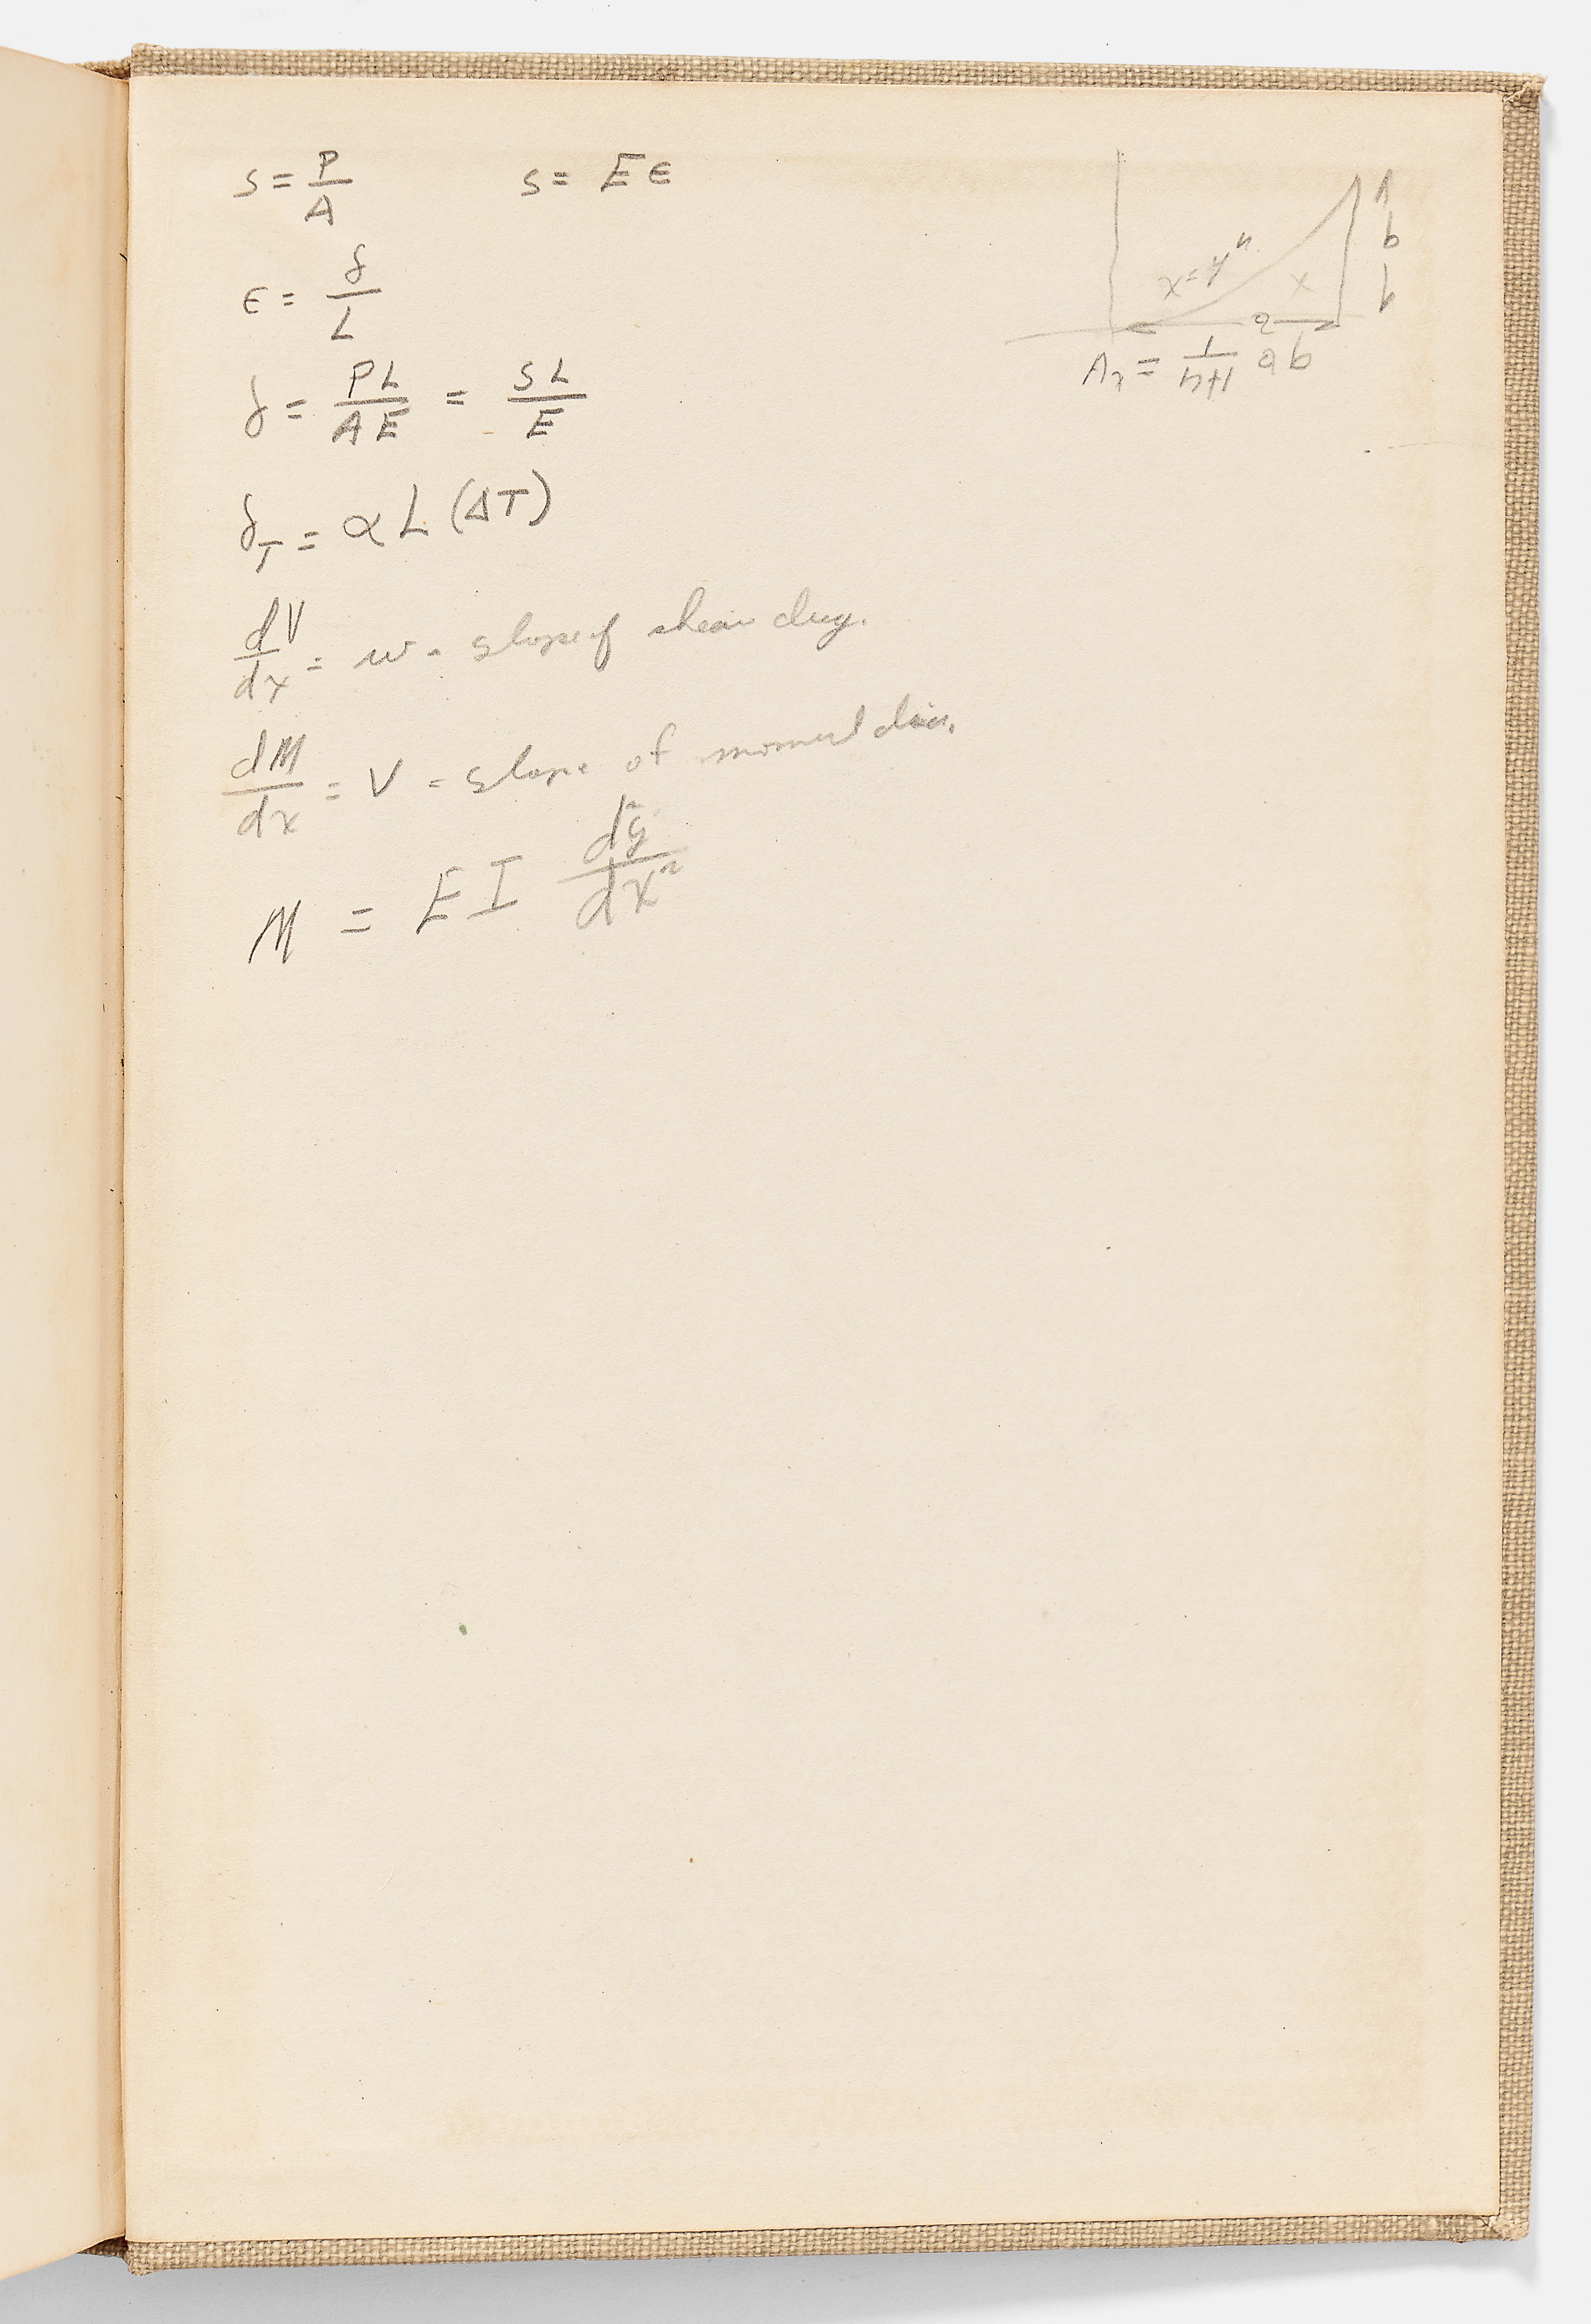 s = P/A    s = E ε
ε = δ/L
δ = PL/AE = SL/E
δ_T = α L (ΔT)
dV/dx = w = slope of shear diag.
dM/dx = V = slope of moment diag.
M = E I d²y/dx²
x = yⁿ
x
b
a
A = 1/(n+1) ab